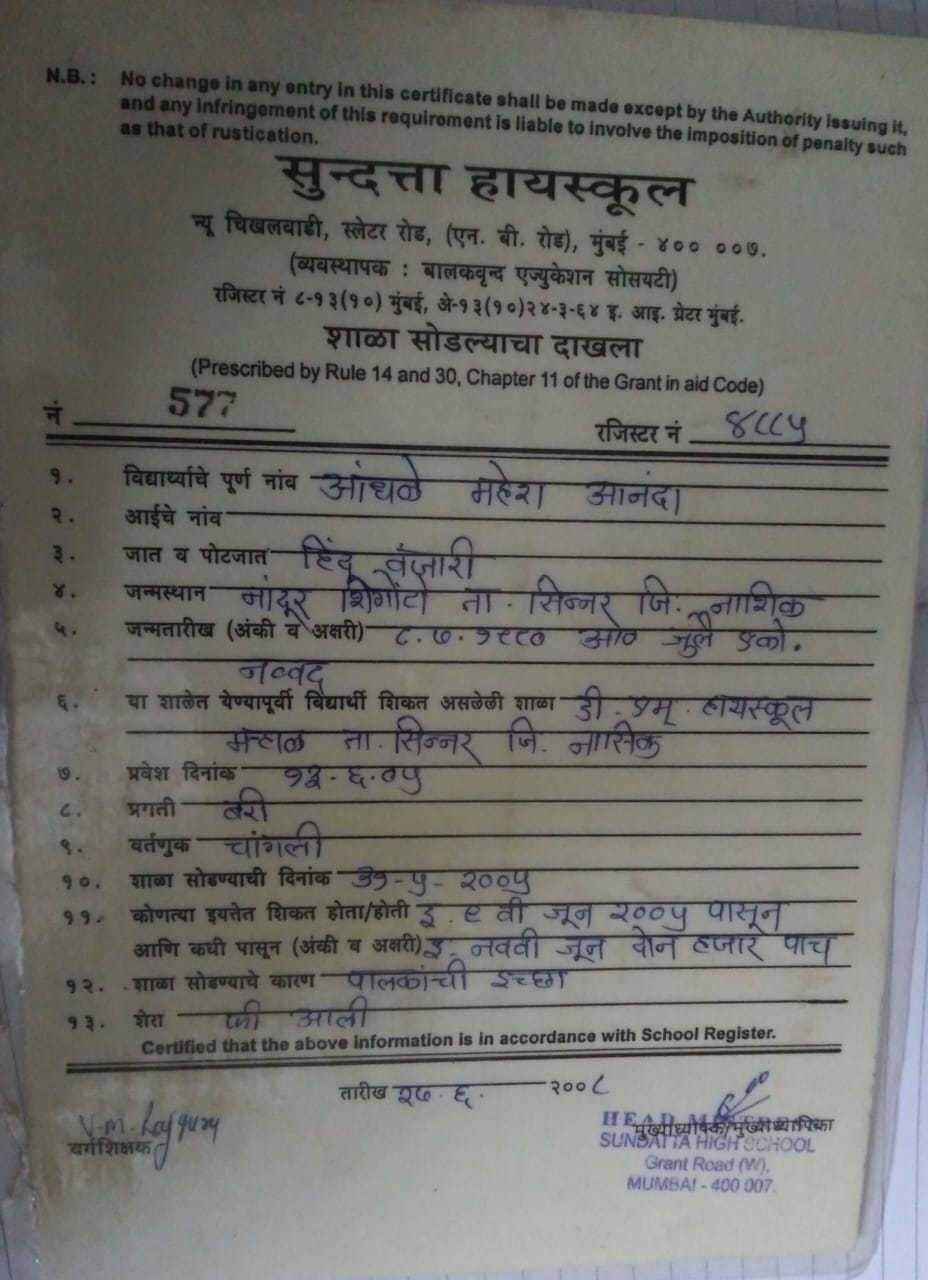 N.B. : No change in any entry in this certificate shall be made except by the Authority issuing it,
and any infringement of this requirement is liable to involve the imposition of penalty such
as that of rustication.
सुन्दत्ता हायस्कूल
न्यू चिखलवाडी, स्लेटर रोड, (एन. बी. रोड), मुंबई - ४०० ००७.
(व्यवस्थापक : बालकवृन्द एज्युकेशन सोसयटी)
रजिस्टर नं ८-१३(१०) मुंबई, अे-१३(१०)२४-३-६४ इ. आइ. ग्रेटर मुंबई.
शाळा सोडल्याचा दाखला
(Prescribed by Rule 14 and 30, Chapter 11 of the Grant in aid Code)
नं 577 रजिस्टर नं ४८८५
१. विद्यार्थ्याचे पूर्ण नांव आंधळे महेश आनंदा
२. आईचे नांव
३. जात व पोटजात हिंदू वंजारी
४. जन्मस्थान नांदूर शिंगोटे ता. सिन्नर जि. नाशिक
५. जन्मतारीख (अंकी व अक्षरी) ८.७. जुलै एको.
नव्वद
६. या शाळेत येण्यापूर्वी विद्यार्थी शिकत असलेली शाळा डी. एम. हायस्कूल
ता. सिन्नर जि. नासिक
७. प्रवेश दिनांक १३.६.०५
८. प्रगती बरी
९. वर्तणुक चांगली
१०. शाळा सोडण्याची दिनांक ३१-५-२००५
११. कोणत्या इयत्तेत शिकत होता/होती इ. ९ वी जून २००५ पासून
आणि कधी पासून (अंकी व अक्षरी) इ. नववी जून दोन हजार पाच
१२. शाळा सोडण्याचे कारण पालकांची इच्छा
१३. शेरा फी आली
Certified that the above information is in accordance with School Register.
तारीख २७.६. २००८
वर्गशिक्षक
मुख्याध्यापक/मुख्याध्यापिका
HEAD MISTRESS
SUNDATTA HIGH SCHOOL
Grant Road (W),
MUMBAI - 400 007.